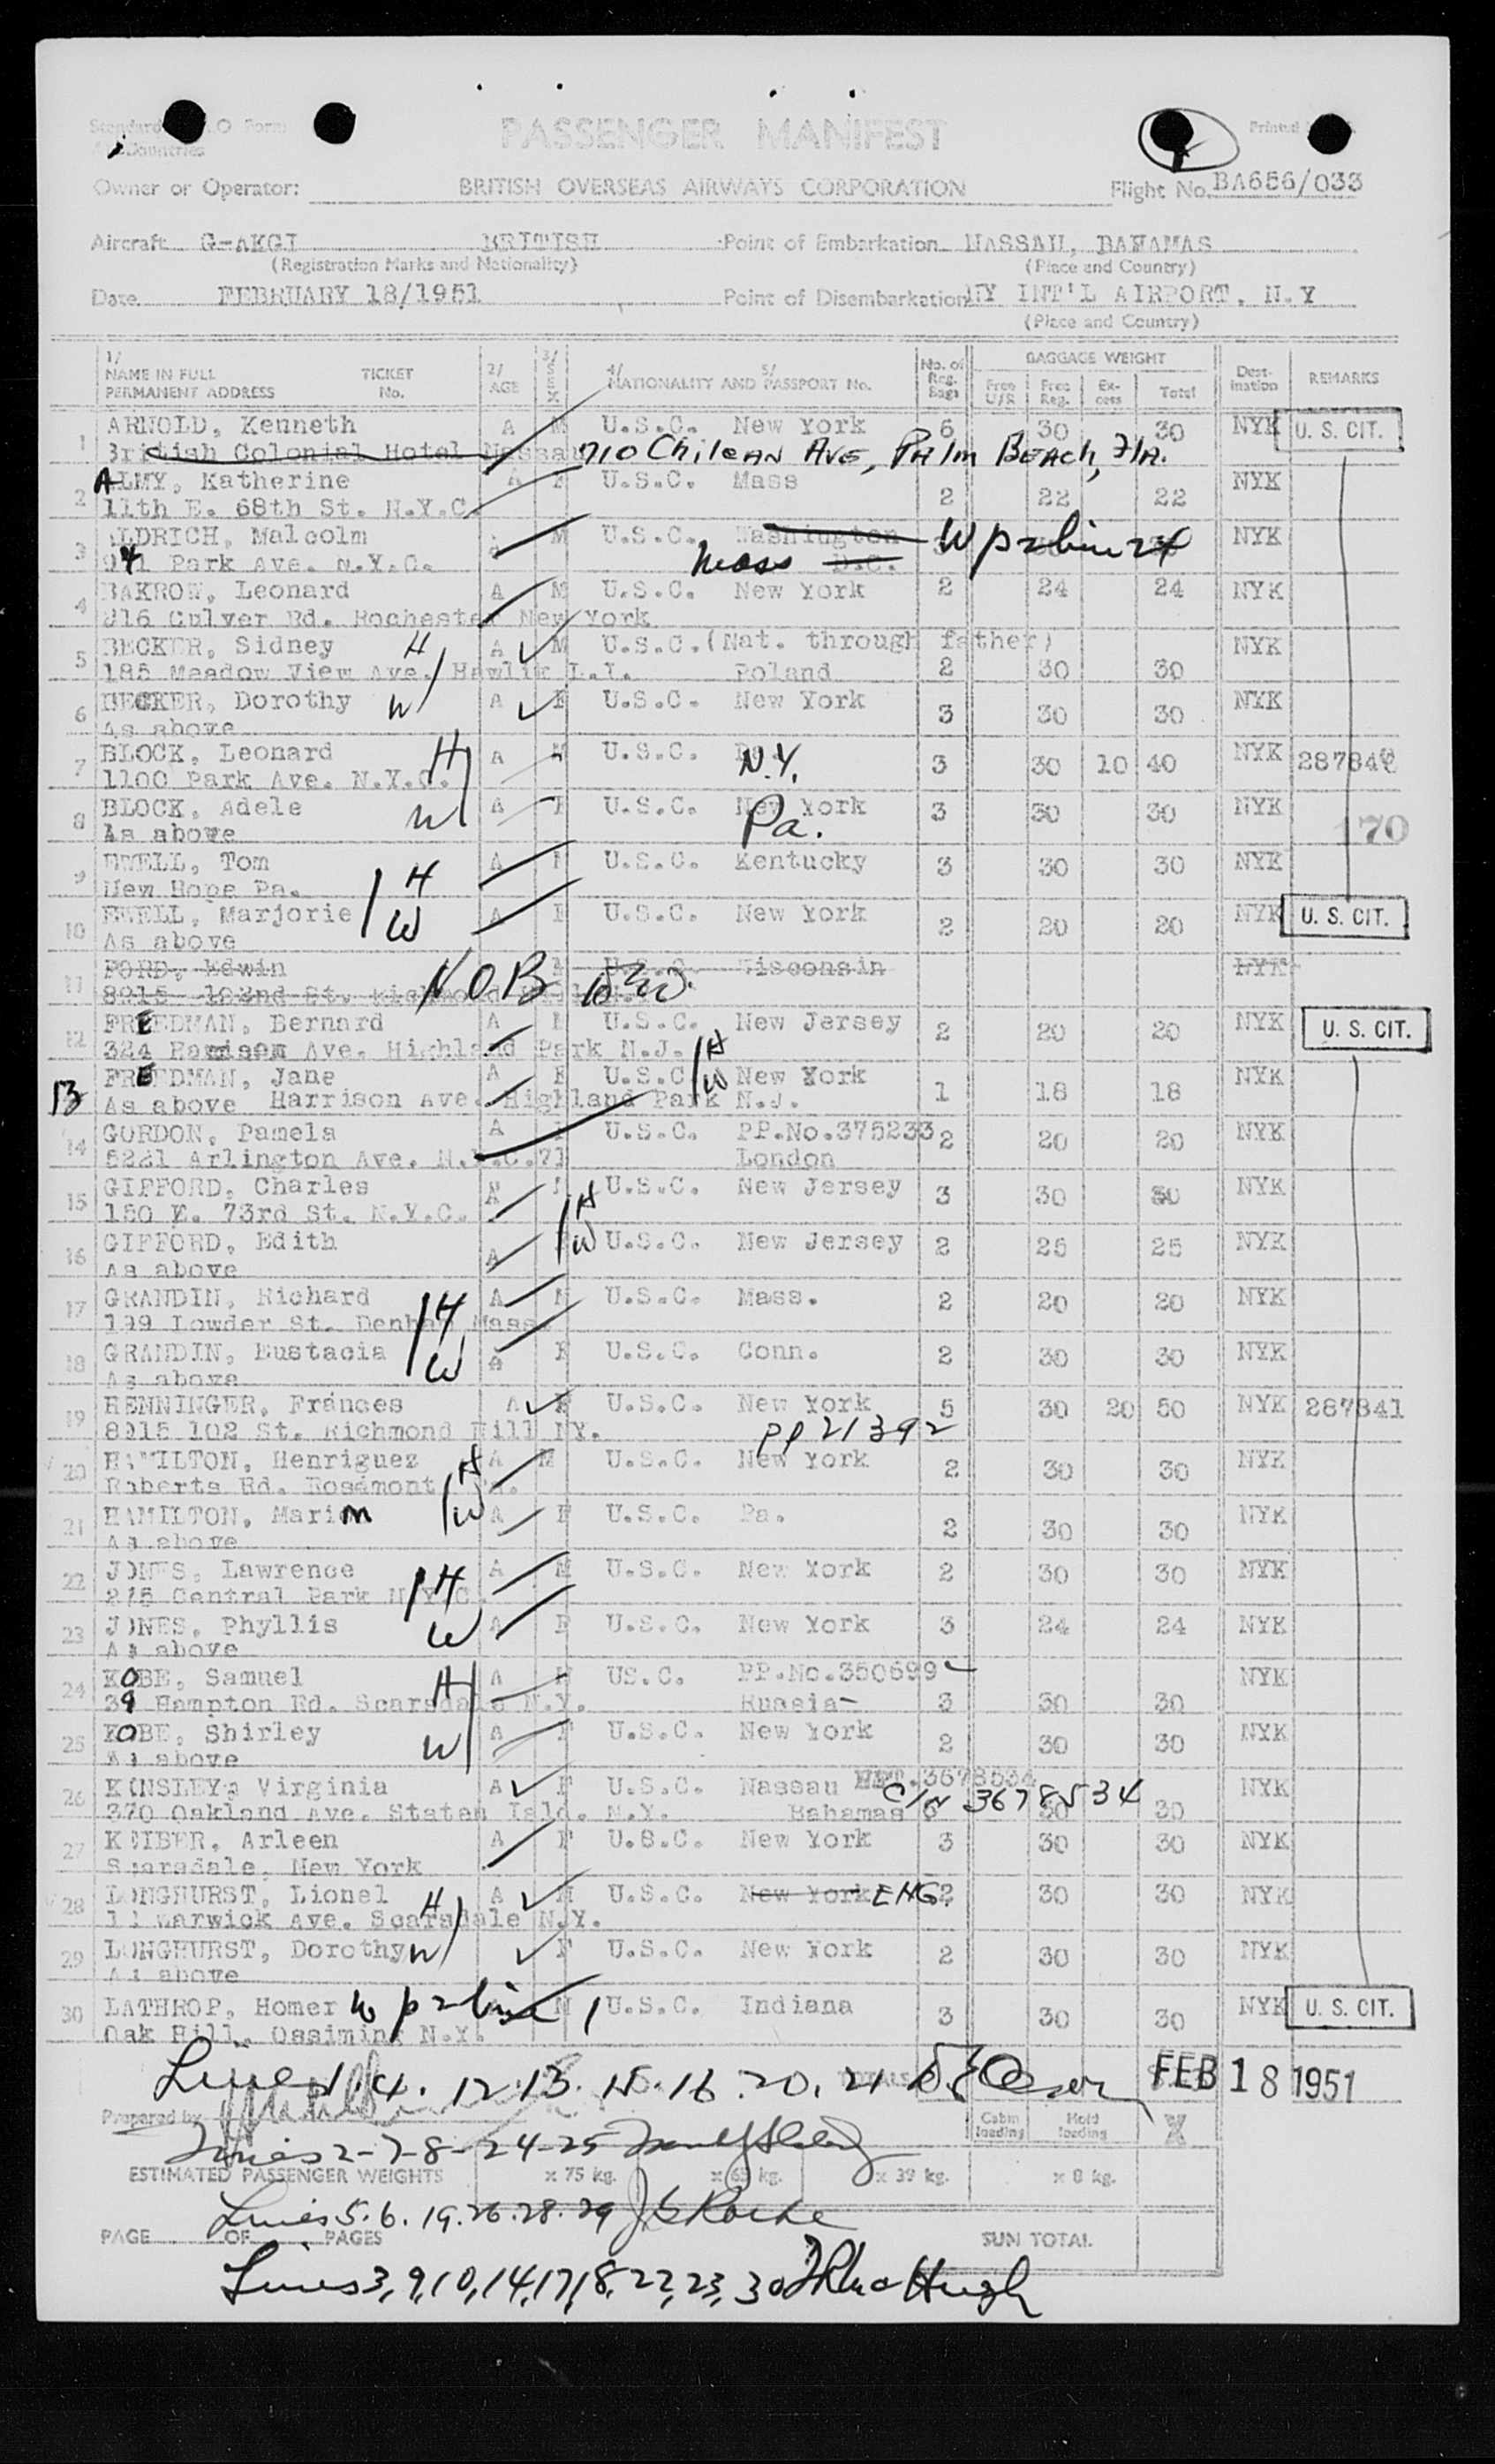 PASSENGER MANIFEST
Owner or Operator: BRITISH OVERSEAS AIRWAYS CORPORATION Flight No. BA656/033
Aircraft G-AKGJ BRITISH Point of Embarkation NASSAU, BAHAMAS
(Registration Marks and Nationality) (Place and Country)
Date FEBRUARY 18/1951 Point of Disembarkation NY INT'L AIRPORT, N.Y
(Place and Country)
1/ NAME IN FULL PERMANENT ADDRESS TICKET No. 2/ AGE 3/ SEX 4/ 5/ NATIONALITY AND PASSPORT No. No. of Reg. Bags BAGGAGE WEIGHT Free U/R Free Reg. Ex-cess Total Dest-ination REMARKS
1 ARNOLD, Kenneth A M U.S.C. New York 6 30 30 NYK U. S. CIT.
British Colonial Hotel Nassau 710 Chilean Ave, Palm Beach, Fla.
2 ALMY, Katherine A F U.S.C. Mass 2 22 22 NYK
11th E. 68th St. N.Y.C.
3 ALDRICH, Malcolm M U.S.C. Washington NYK
Park Ave. N.Y.C. Mass D.C.
4 BAKROW, Leonard A M U.S.C. New York 2 24 24 NYK
916 Culver Rd. Rochester New York
5 BECKER, Sidney H A M U.S.C. (Nat. through father) NYK
185 Meadow View Ave. Hewlit L.I. Poland 2 30 30
6 BECKER, Dorothy W A F U.S.C. New York 3 30 30 NYK
As above
7 BLOCK, Leonard H A M U.S.C. N.Y. 3 30 10 40 NYK
1100 Park Ave. N.Y.C.
8 BLOCK, Adele W A F U.S.C. New York Pa. 3 30 30 NYK
As above 170
9 EWELL, Tom H A M U.S.C. Kentucky 3 30 30 NYK
New Hope Pa.
10 EWELL, Marjorie W A F U.S.C. New York 2 20 20 NYK U. S. CIT.
As above
11 FORD, Edwin NOB U.S.C. Wisconsin NYK
8915 102nd St.
12 FREEDMAN, Bernard A M U.S.C. New Jersey 2 20 20 NYK U. S. CIT.
324 Harrison Ave. Highland Park N.J. H
13 FREEDMAN, Jane A F U.S.C W New York 1 18 18 NYK
As above Harrison Ave. Highland Park N.J.
14 GORDON, Pamela A F U.S.C. PP.No.375233 2 20 20 NYK
5221 Arlington Ave. N.Y.C.71 London
15 GIFFORD, Charles A M H U.S.C. New Jersey 3 30 30 NYK
150 E. 73rd St. N.Y.C.
16 GIFFORD, Edith A W U.S.C. New Jersey 2 25 25 NYK
As above
17 GRANDIN, Richard H A M U.S.C. Mass. 2 20 20 NYK
199 Lowder St. Denham Mass.
18 GRANDIN, Eustacia W A F U.S.C. Conn. 2 30 30 NYK
As above
19 HENNINGER, Frances A F U.S.C. New York 5 30 20 50 NYK 287841
8915 102 St. Richmond Hill NY. PP 21392
20 HAMILTON, Henriguez H A M U.S.C. New York 2 30 30 NYK
Roberts Rd. Rosemont Pa.
21 HAMILTON, Marion W A F U.S.C. Pa. 2 30 30 NYK
As above
22 JONES, Lawrence H A M U.S.C. New York 2 30 30 NYK
Central Park N.Y.C.
23 JONES, Phyllis W A F U.S.C. New York 3 24 24 NYK
As above
24 KOBE, Samuel H A M US.C. PP.No.350699 NYK
39 Hampton Rd. Scarsdale N.Y. Russia 3 30 30
25 KOBE, Shirley W A F U.S.C. New York 2 30 30 NYK
As above
26 KINSLEY, Virginia A F U.S.C. Nassau 3678534 NYK
370 Oakland Ave. Staten Isld. N.Y. Bahamas C/N 3678534 30 30
27 Arleen A F U.S.C. New York 3 30 30 NYK
Scarsdale, New York
28 LONGHURST, Lionel H A M U.S.C. New York ENG. 2 30 30 NYK
Warwick Ave. Scarsdale N.Y.
29 LONGHURST, Dorothy W F U.S.C. New York 2 30 30 NYK
As above
30 LATHROP, Homer M U.S.C. Indiana 3 30 30 NYK U. S. CIT.
Oak Hill, Ossiming N.Y.
Lines 1. 4. 12. 13. 15. 16. 20. 21 FEB 18 1951
Prepared by Cabin loading Hold loading
Lines 2-7-8-24-25
ESTIMATED PASSENGER WEIGHTS x 75 kg. x 65 kg. x 39 kg. x 8 kg.
Lines 5. 6. 19. 26. 28. 29
PAGE OF PAGES SUN TOTAL
Lines 3, 9, 10, 14, 17, 18, 22, 23, 30